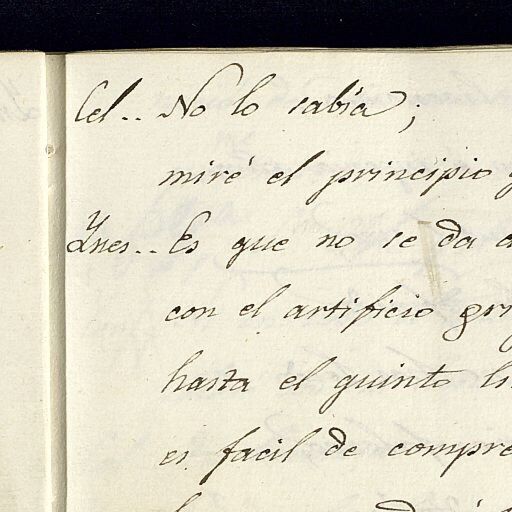 Cel.. No lo sabia;
miré el principio
Ynes.. Es que no se da
con el artificio
hasta el quinto
es facil de compre